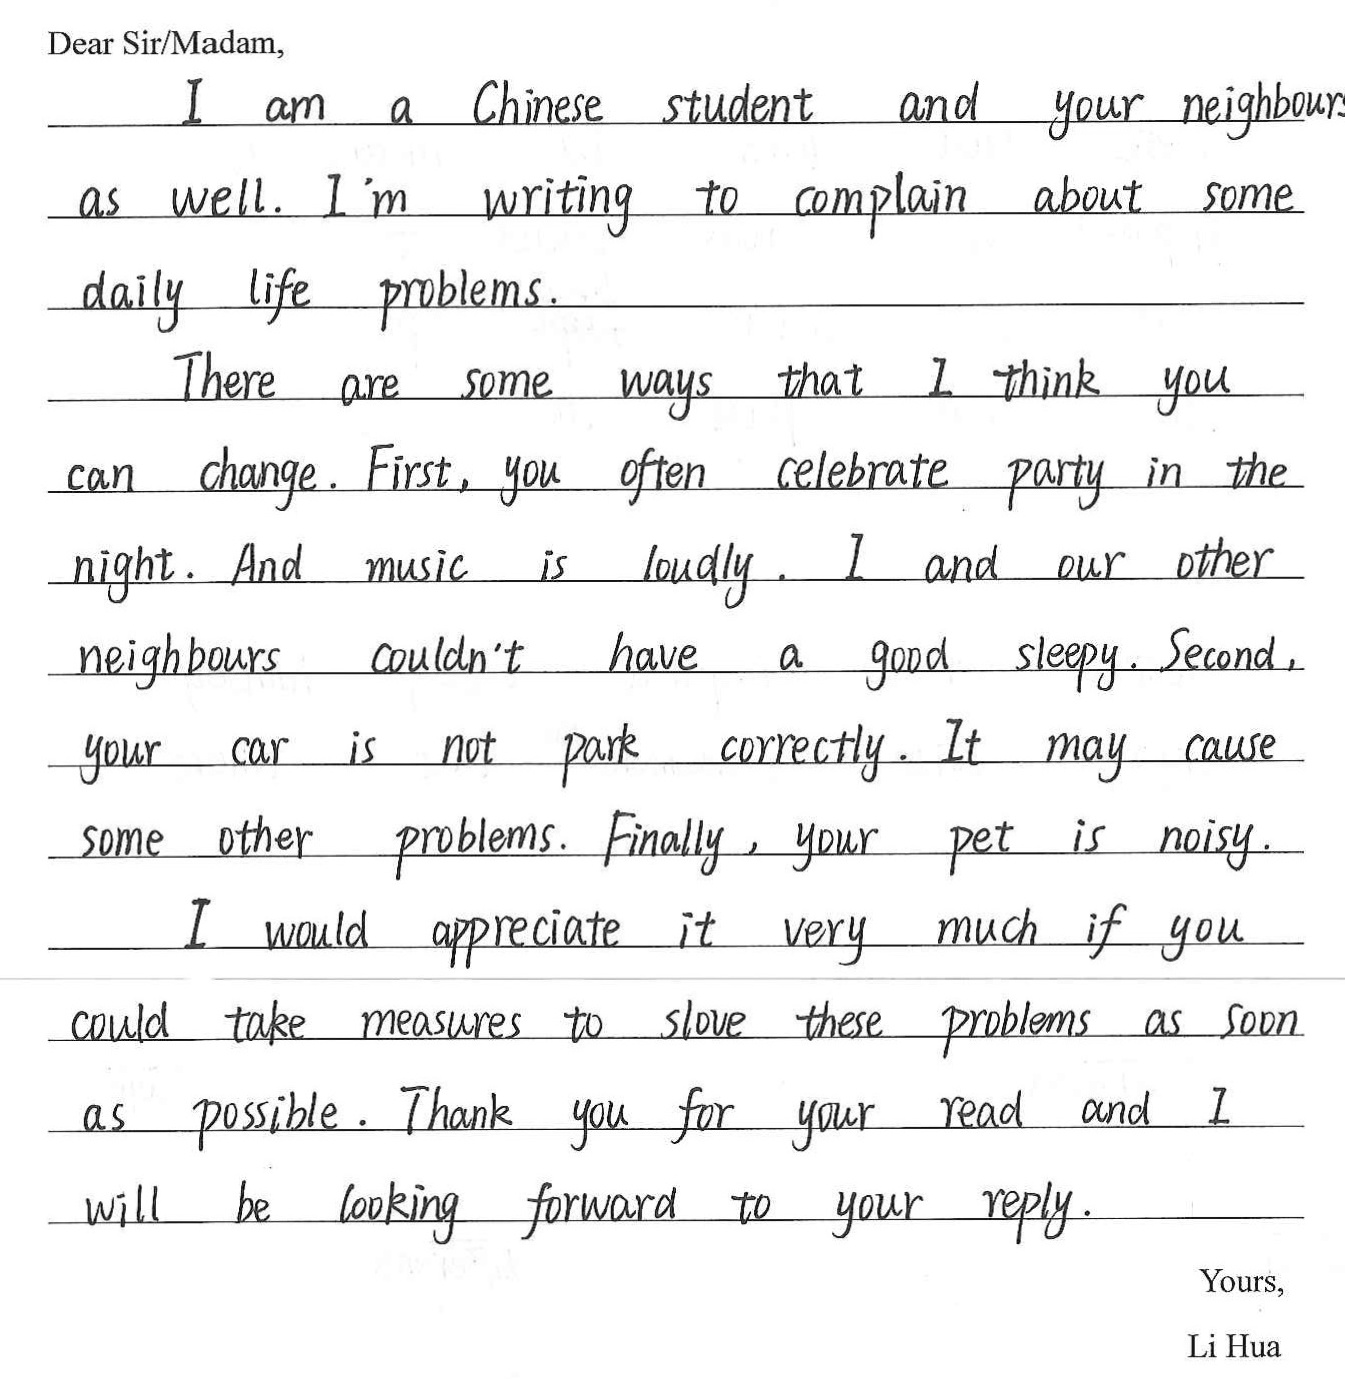 Dear Sir/Madam,
I am a Chinese student and your neighbours
as well. I'm writing to complain about some
daily life problems.
There are some ways that I think you
can change. First, you often celebrate party in the
night. And music is loudly. I and our other
neighbours couldn't have a good sleepy. Second,
your car is not park correctly. It may cause
some other problems. Finally, your pet is noisy.
I would appreciate it very much if you
could take measures to slove these problems as soon
as possible. Thank you for your read and I
will be looking forward to your reply.
Yours,
Li Hua